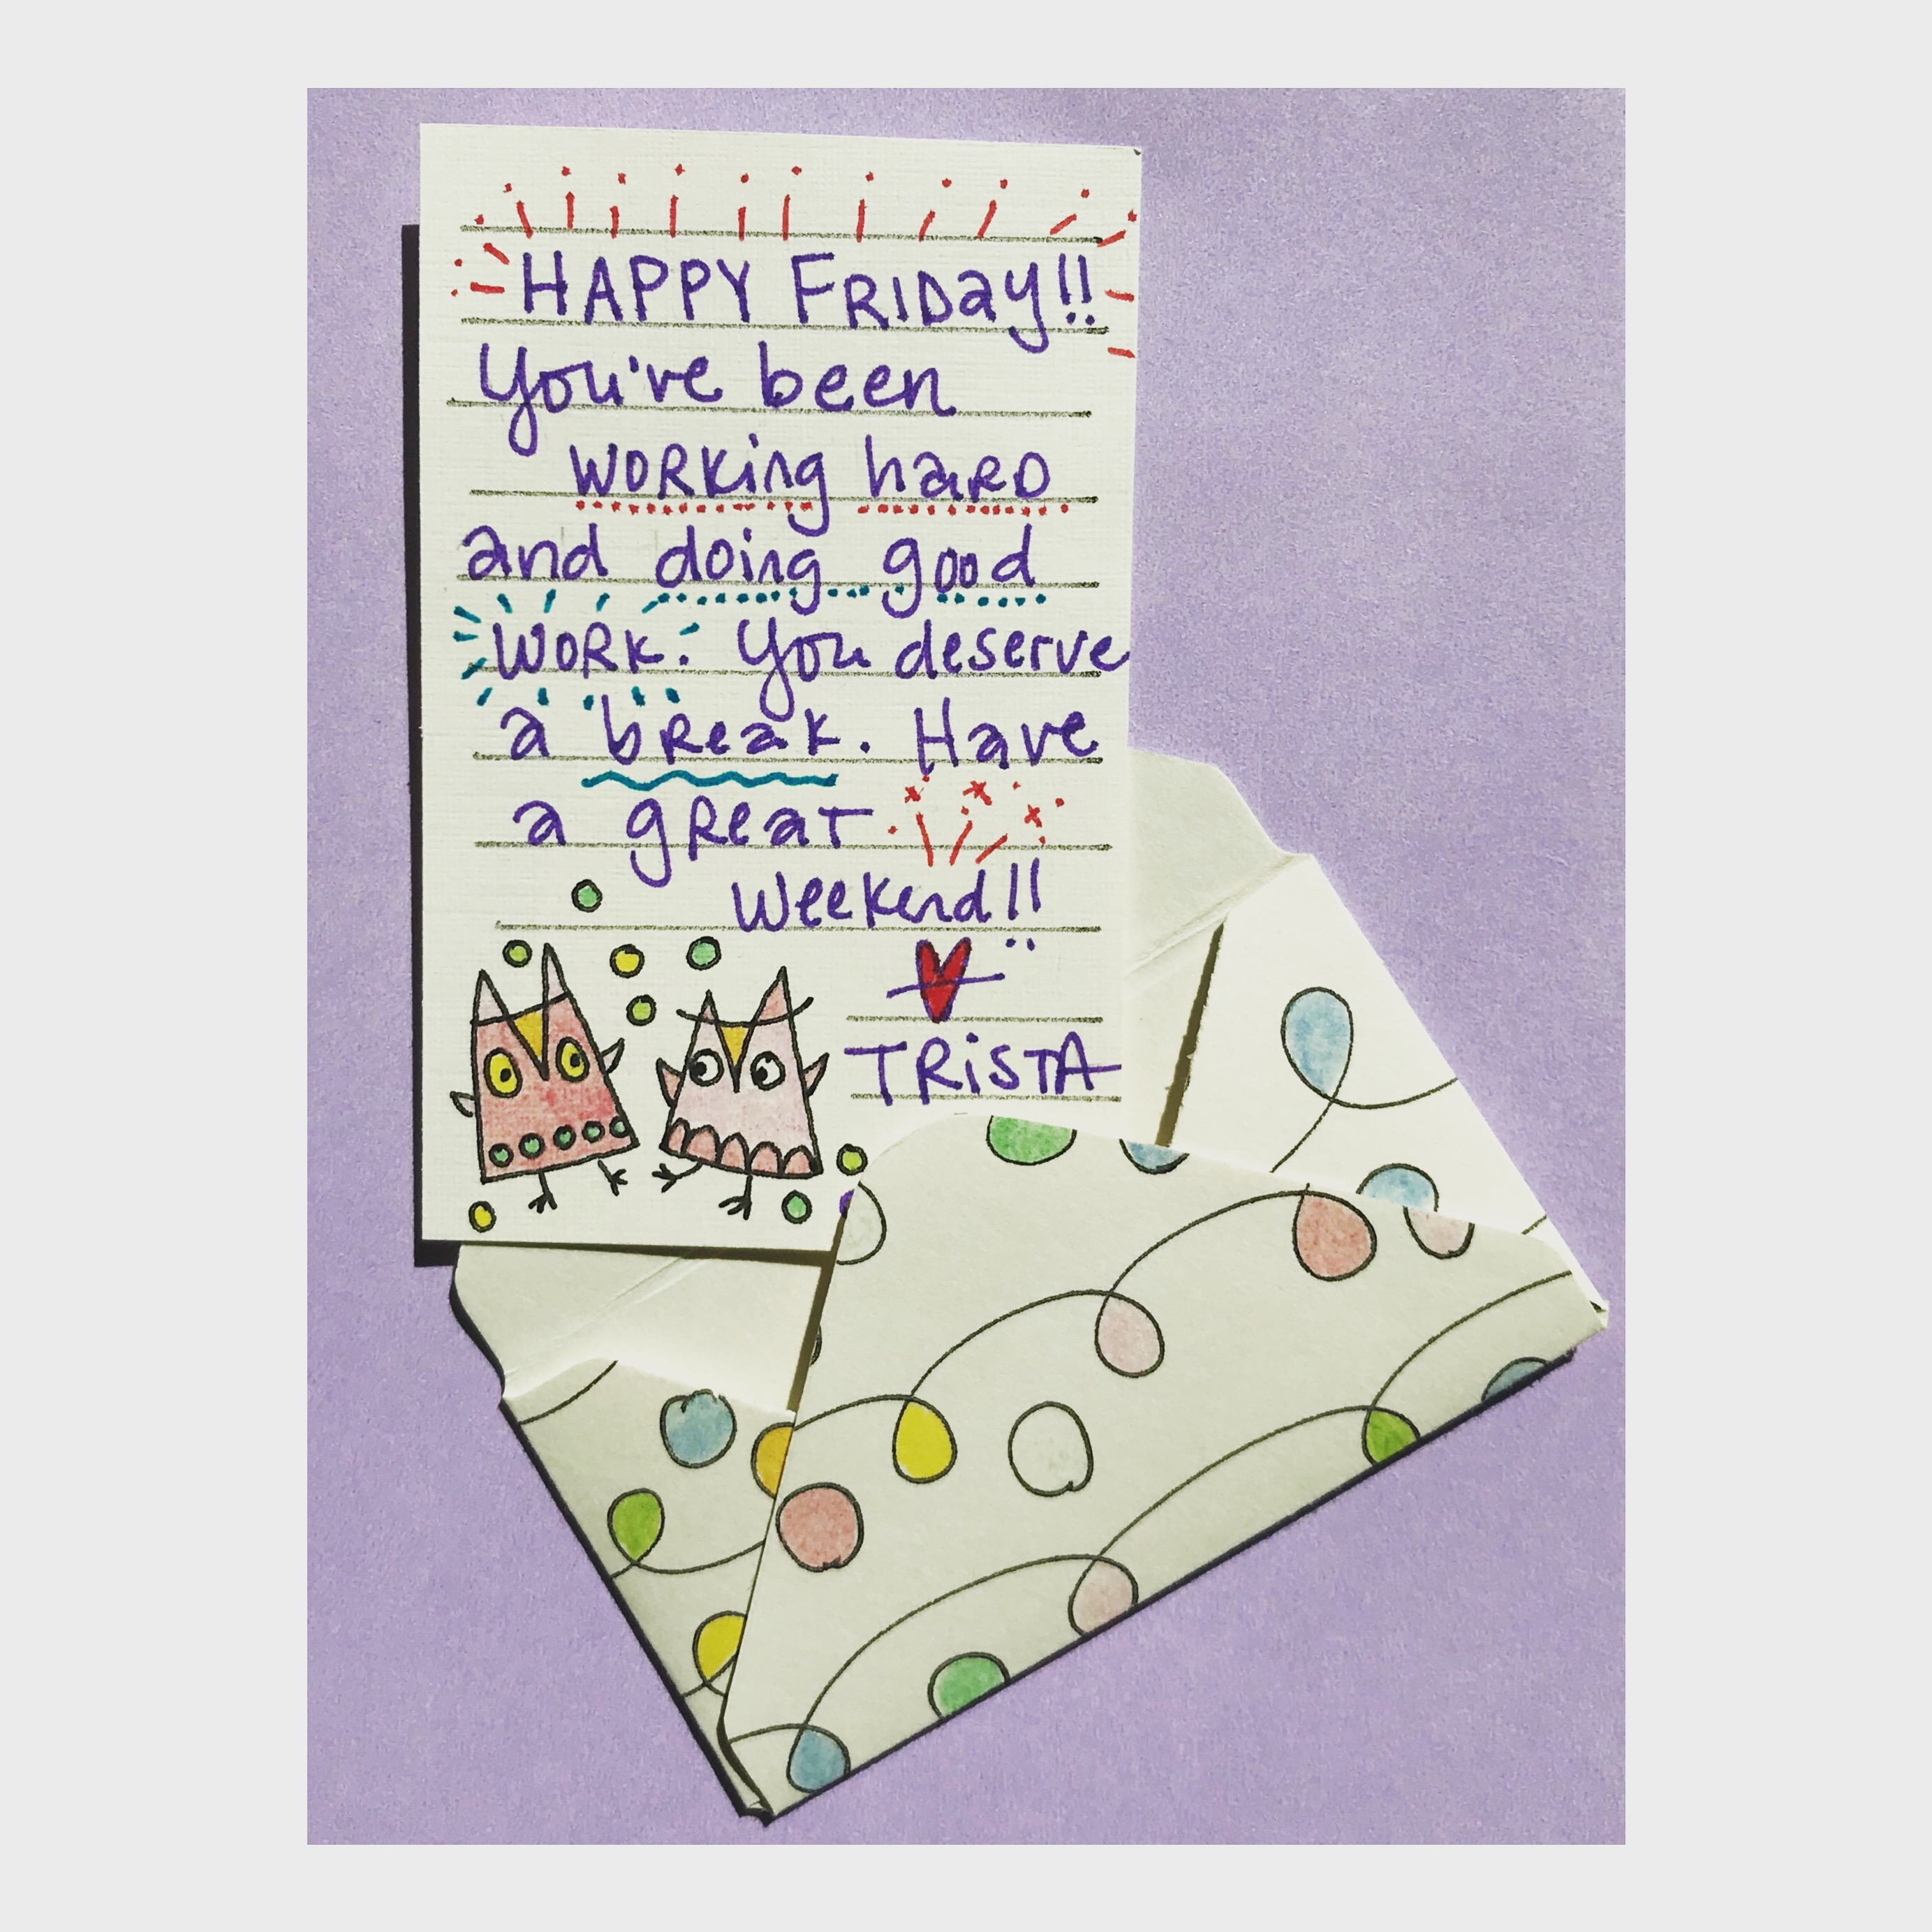 HAPPY FRIDay!!
you've been
working hard
and doing good
work. you deserve
a break. Have
a great
weekend!!
TRiSTA